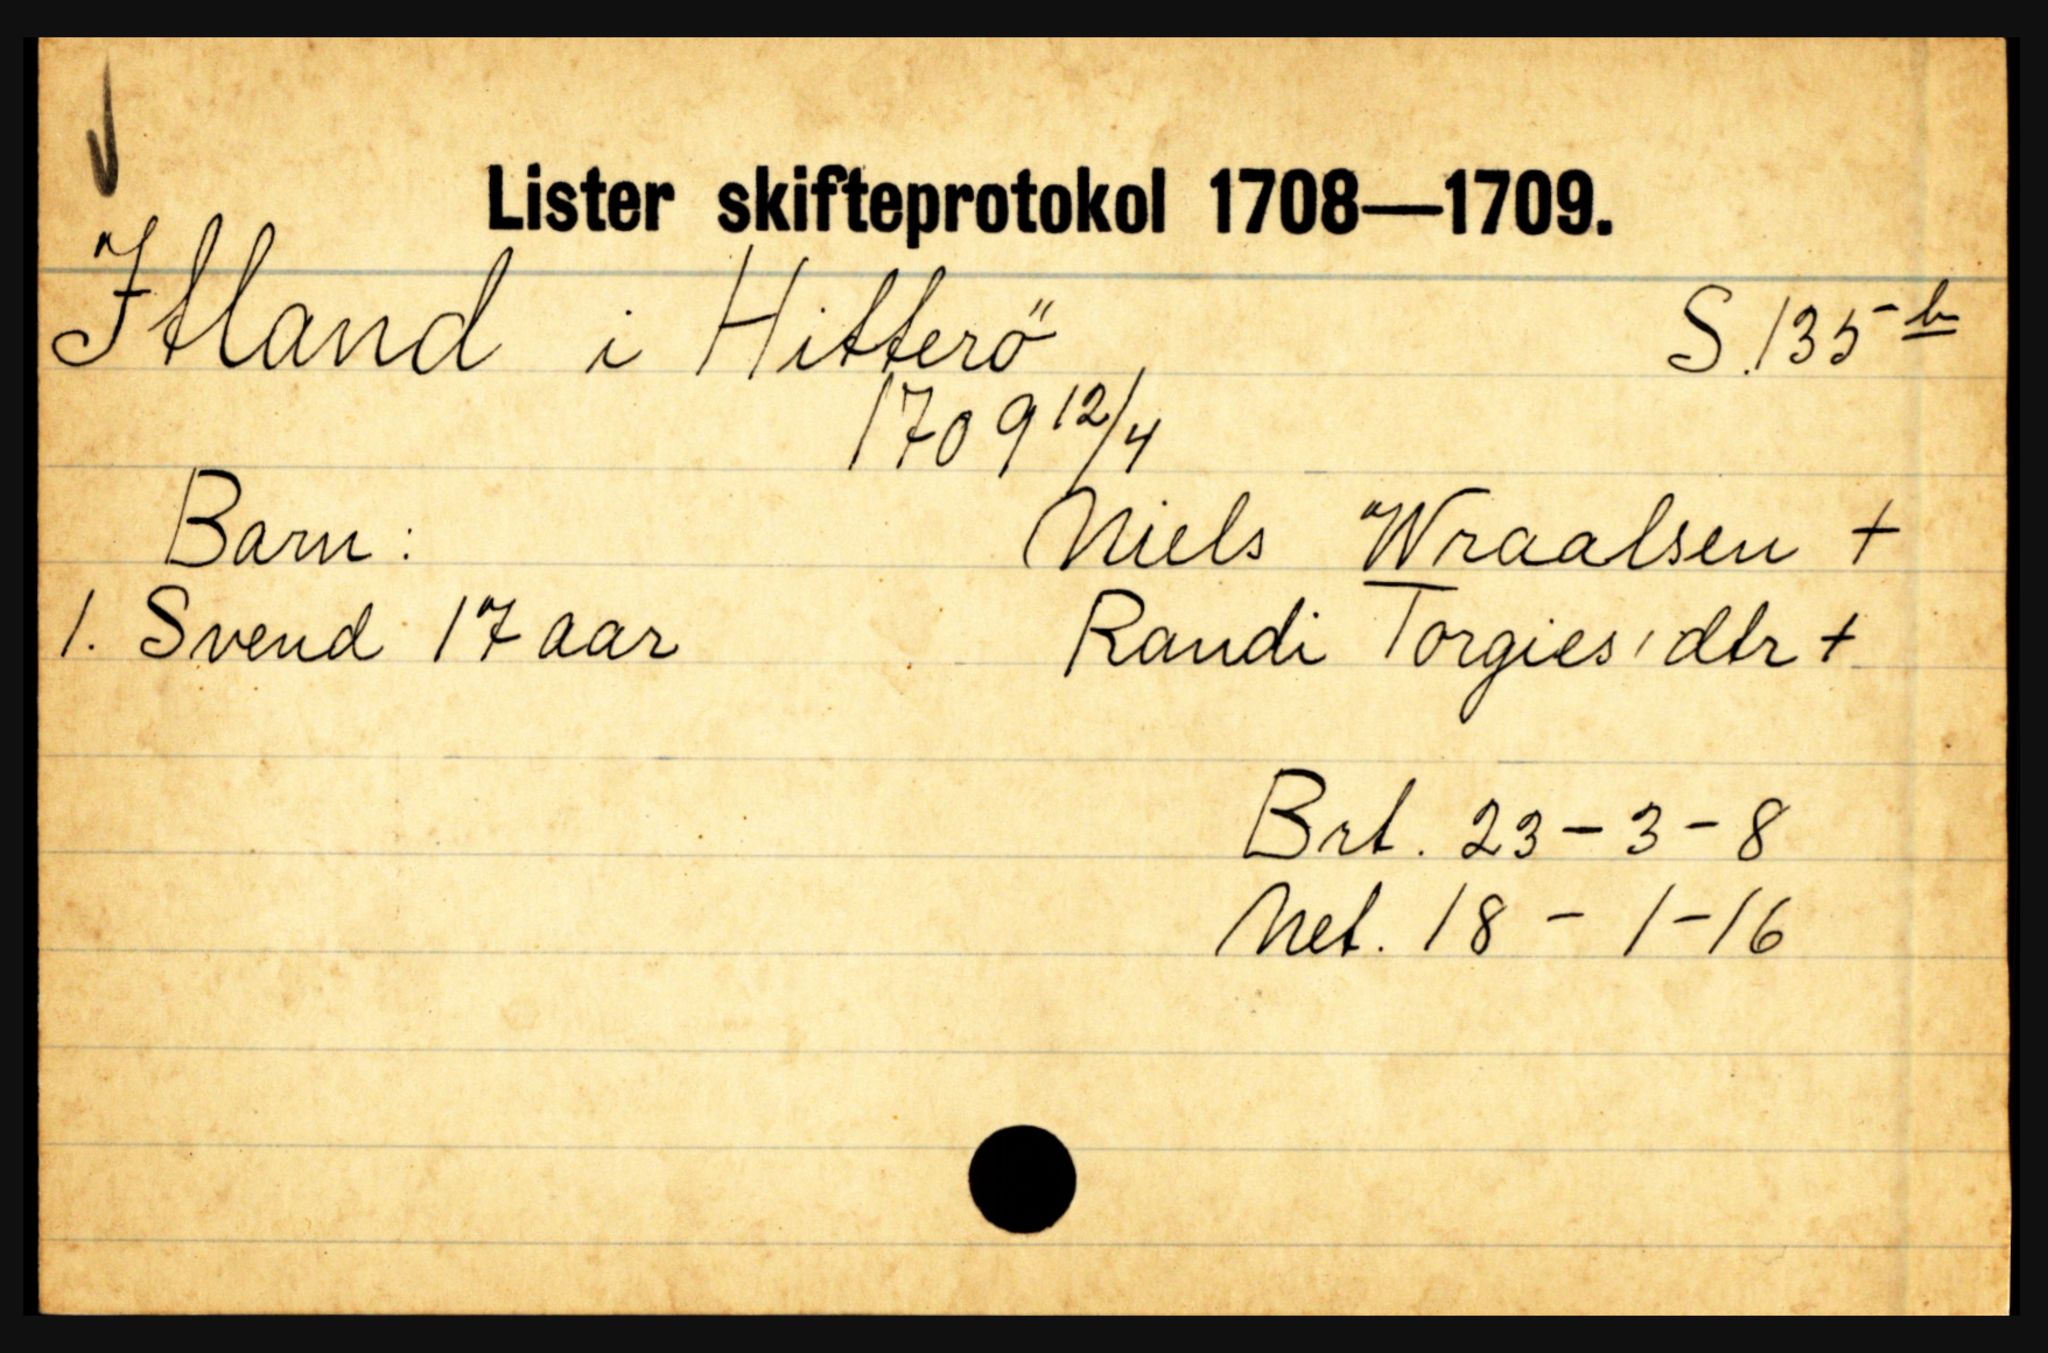 Lister skifteprotokol 1708—1709.
Itland i Hitterö S. 135-b
1709 12/4
Barn: Niels Wraalsen +
1. Svend 17 aar Randi Torgiesdtr +
Brt. 23 - 3 - 8
Net. 18 - 1 - 16